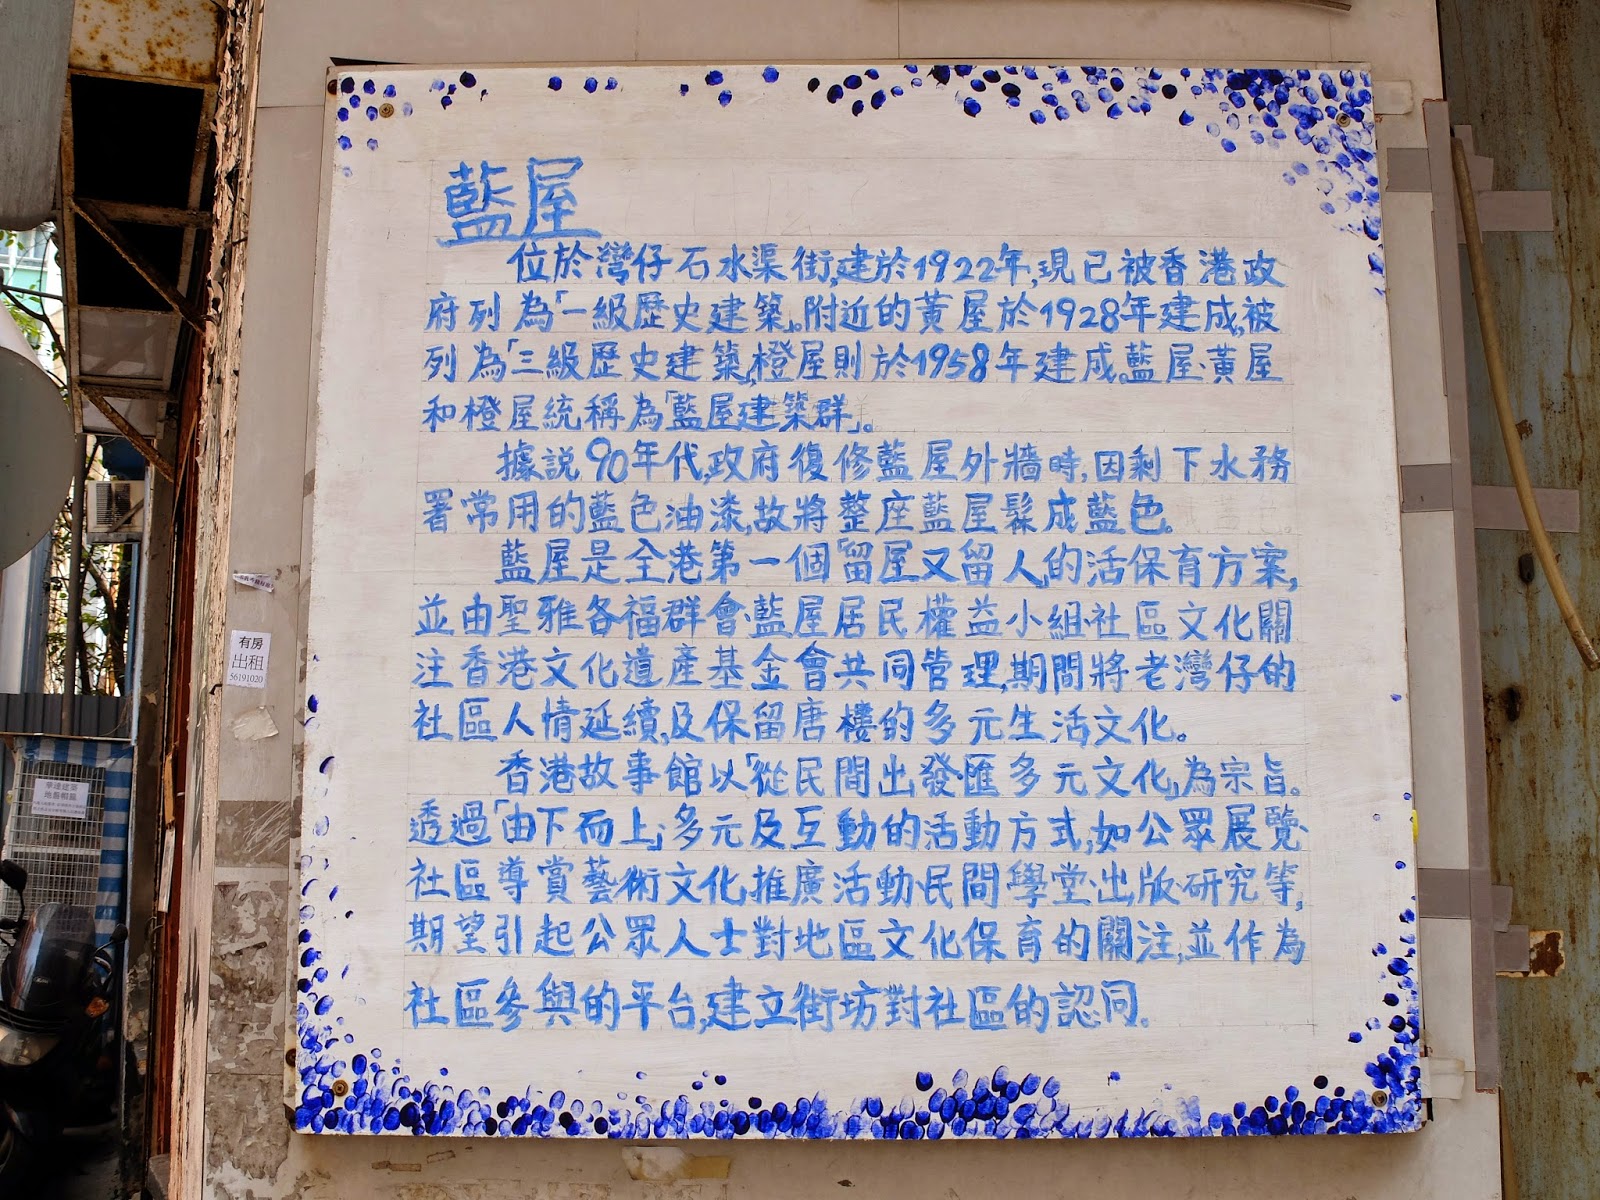 藍屋
位於灣仔石水渠街,建於1922年,現已被香港政
府列為「一級歷史建築」。附近的黃屋於1928年建成,被
列為「三級歷史建築」,橙屋則於1958年建成。藍屋、黃屋
和橙屋統稱為「藍屋建築群」。
據說90年代,政府復修藍屋外牆時,因剩下水務
署常用的藍色油漆,故將整座藍屋髹成藍色。
藍屋是全港第一個「留屋又留人」的活保育方案,
並由聖雅各福群會、藍屋居民權益小組、社區文化關
注香港文化遺產基金會共同管理,期間將老灣仔的
社區人情延續,及保留唐樓的多元生活文化。
香港故事館以「從民間出發,匯多元文化」為宗旨。
透過「由下而上」,多元及互動的活動方式,如公眾展覽、
社區導賞、藝術文化推廣活動、民間學堂、出版、研究等,
期望引起公眾人士對地區文化保育的關注,並作為
社區參與的平台,建立街坊對社區的認同。
有房
出租
56191020
華達建築
地舊帽襪